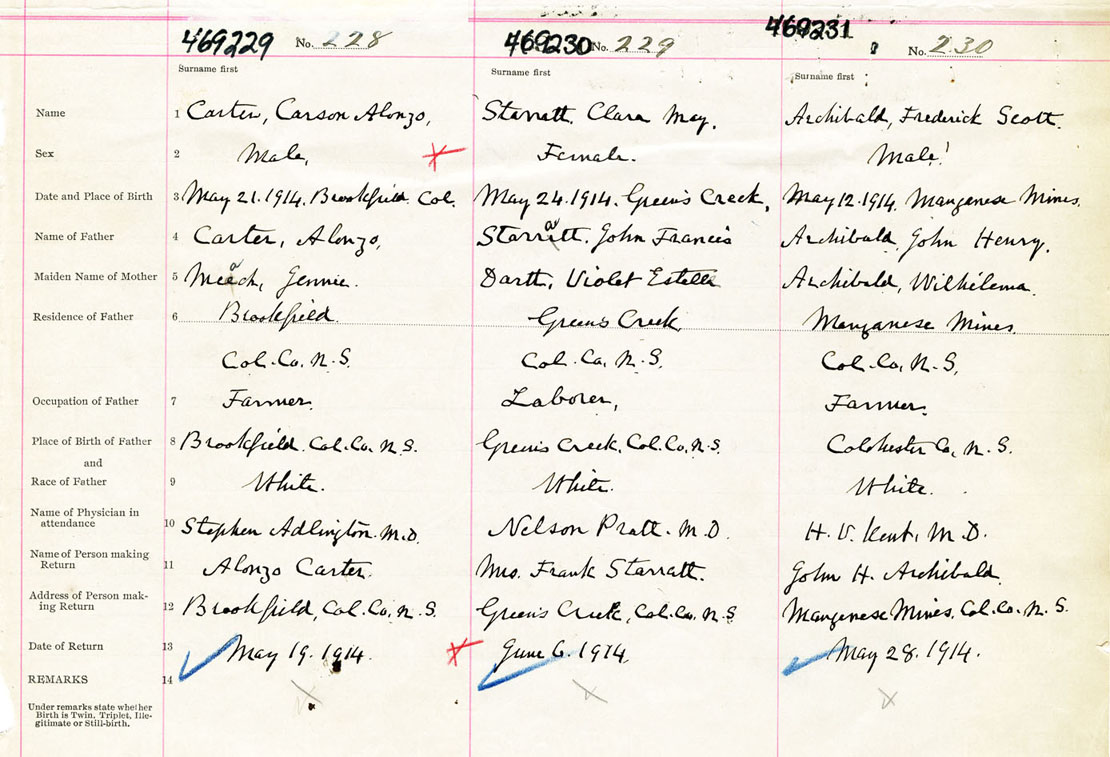 469229 No. 228 469230 No. 229 469231 No. 230
Surname first Surname first Surname first
Name 1 Carter, Carson Alonzo, Starratt, Clara May. Archibald, Frederick Scott.
Sex 2 Male, Female. Male
Date and Place of Birth 3 May 21. 1914. Brookfield. Col. May 24. 1914. Green's Creek, May 12. 1914. Manganese Mines.
Name of Father 4 Carter, Alonzo, Starratt. John Francis Archibald, John Henry.
Maiden Name of Mother 5 Meach, Jennie. Dartt, Violet Estella Archibald, Wilhilema.
Residence of Father 6 Brookfield. Green's Creek, Manganese Mines.
Col. Co, N. S. Col. Co, N. S, Col. Co, N. S,
Occupation of Father 7 Farmer. Laborer, Farmer.
Place of Birth of Father 8 Brookfield. Col. Co, N. S. Green's Creek, Col. Co, N. S. Colchester Co, N. S.
and
Race of Father 9 White. White. White.
Name of Physician in
attendance 10 Stephen Adlington. M.D. Nelson Pratt. M.D. H. V. Kent, M.D.
Name of Person making
Return 11 Alonzo Carter. Mrs. Frank Starratt. John H. Archibald.
Address of Person mak-
ing Return 12 Brookfield, Col. Co, N. S Green's Creek, Col. Co, N. S Manganese Mines, Col. Co. N. S.
Date of Return 13 May 19. 1914. June 6. 1914, May 28. 1914.
REMARKS 14
Under remarks state whether
Birth is Twin, Triplet, Ille-
gitimate or Still-birth.